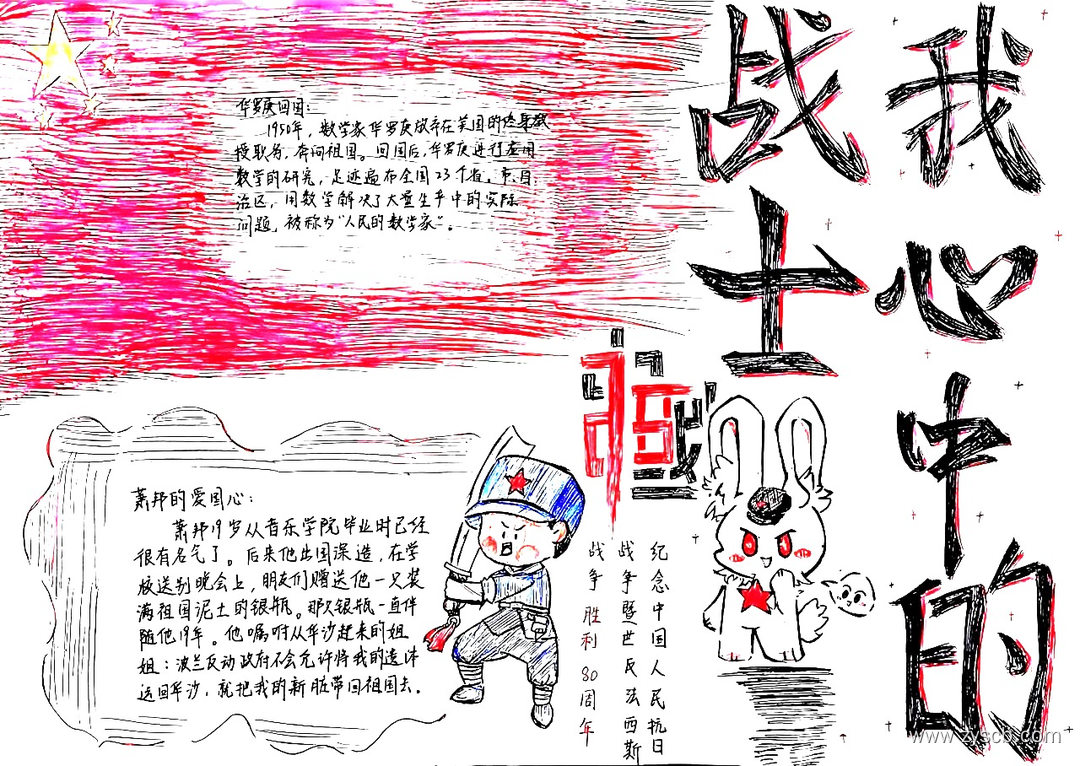 我心中的
战士
华罗庚回国：
1950年，数学家华罗庚放弃在美国的终身教
授职务，奔向祖国。回国后，华罗庚进行应用
数学的研究，足迹遍布全国23个省、市、自
治区，用数学解决了大量生产中的实际
问题，被称为“人民的数学家”。
萧邦的爱国心：
萧邦19岁从音乐学院毕业时已经
很有名气了。后来他出国深造，在学
校送别晚会上，朋友们赠送他一只装
满祖国泥土的银瓶。那只银瓶一直伴
随他19年。他嘱咐从华沙赶来的姐
姐：波兰反动政府不会允许将我的遗体
运回华沙，就把我的新脏带回祖国去。
纪念中国人民抗日
战争暨世反法西斯
战争胜利80周年
www.zyscb.com